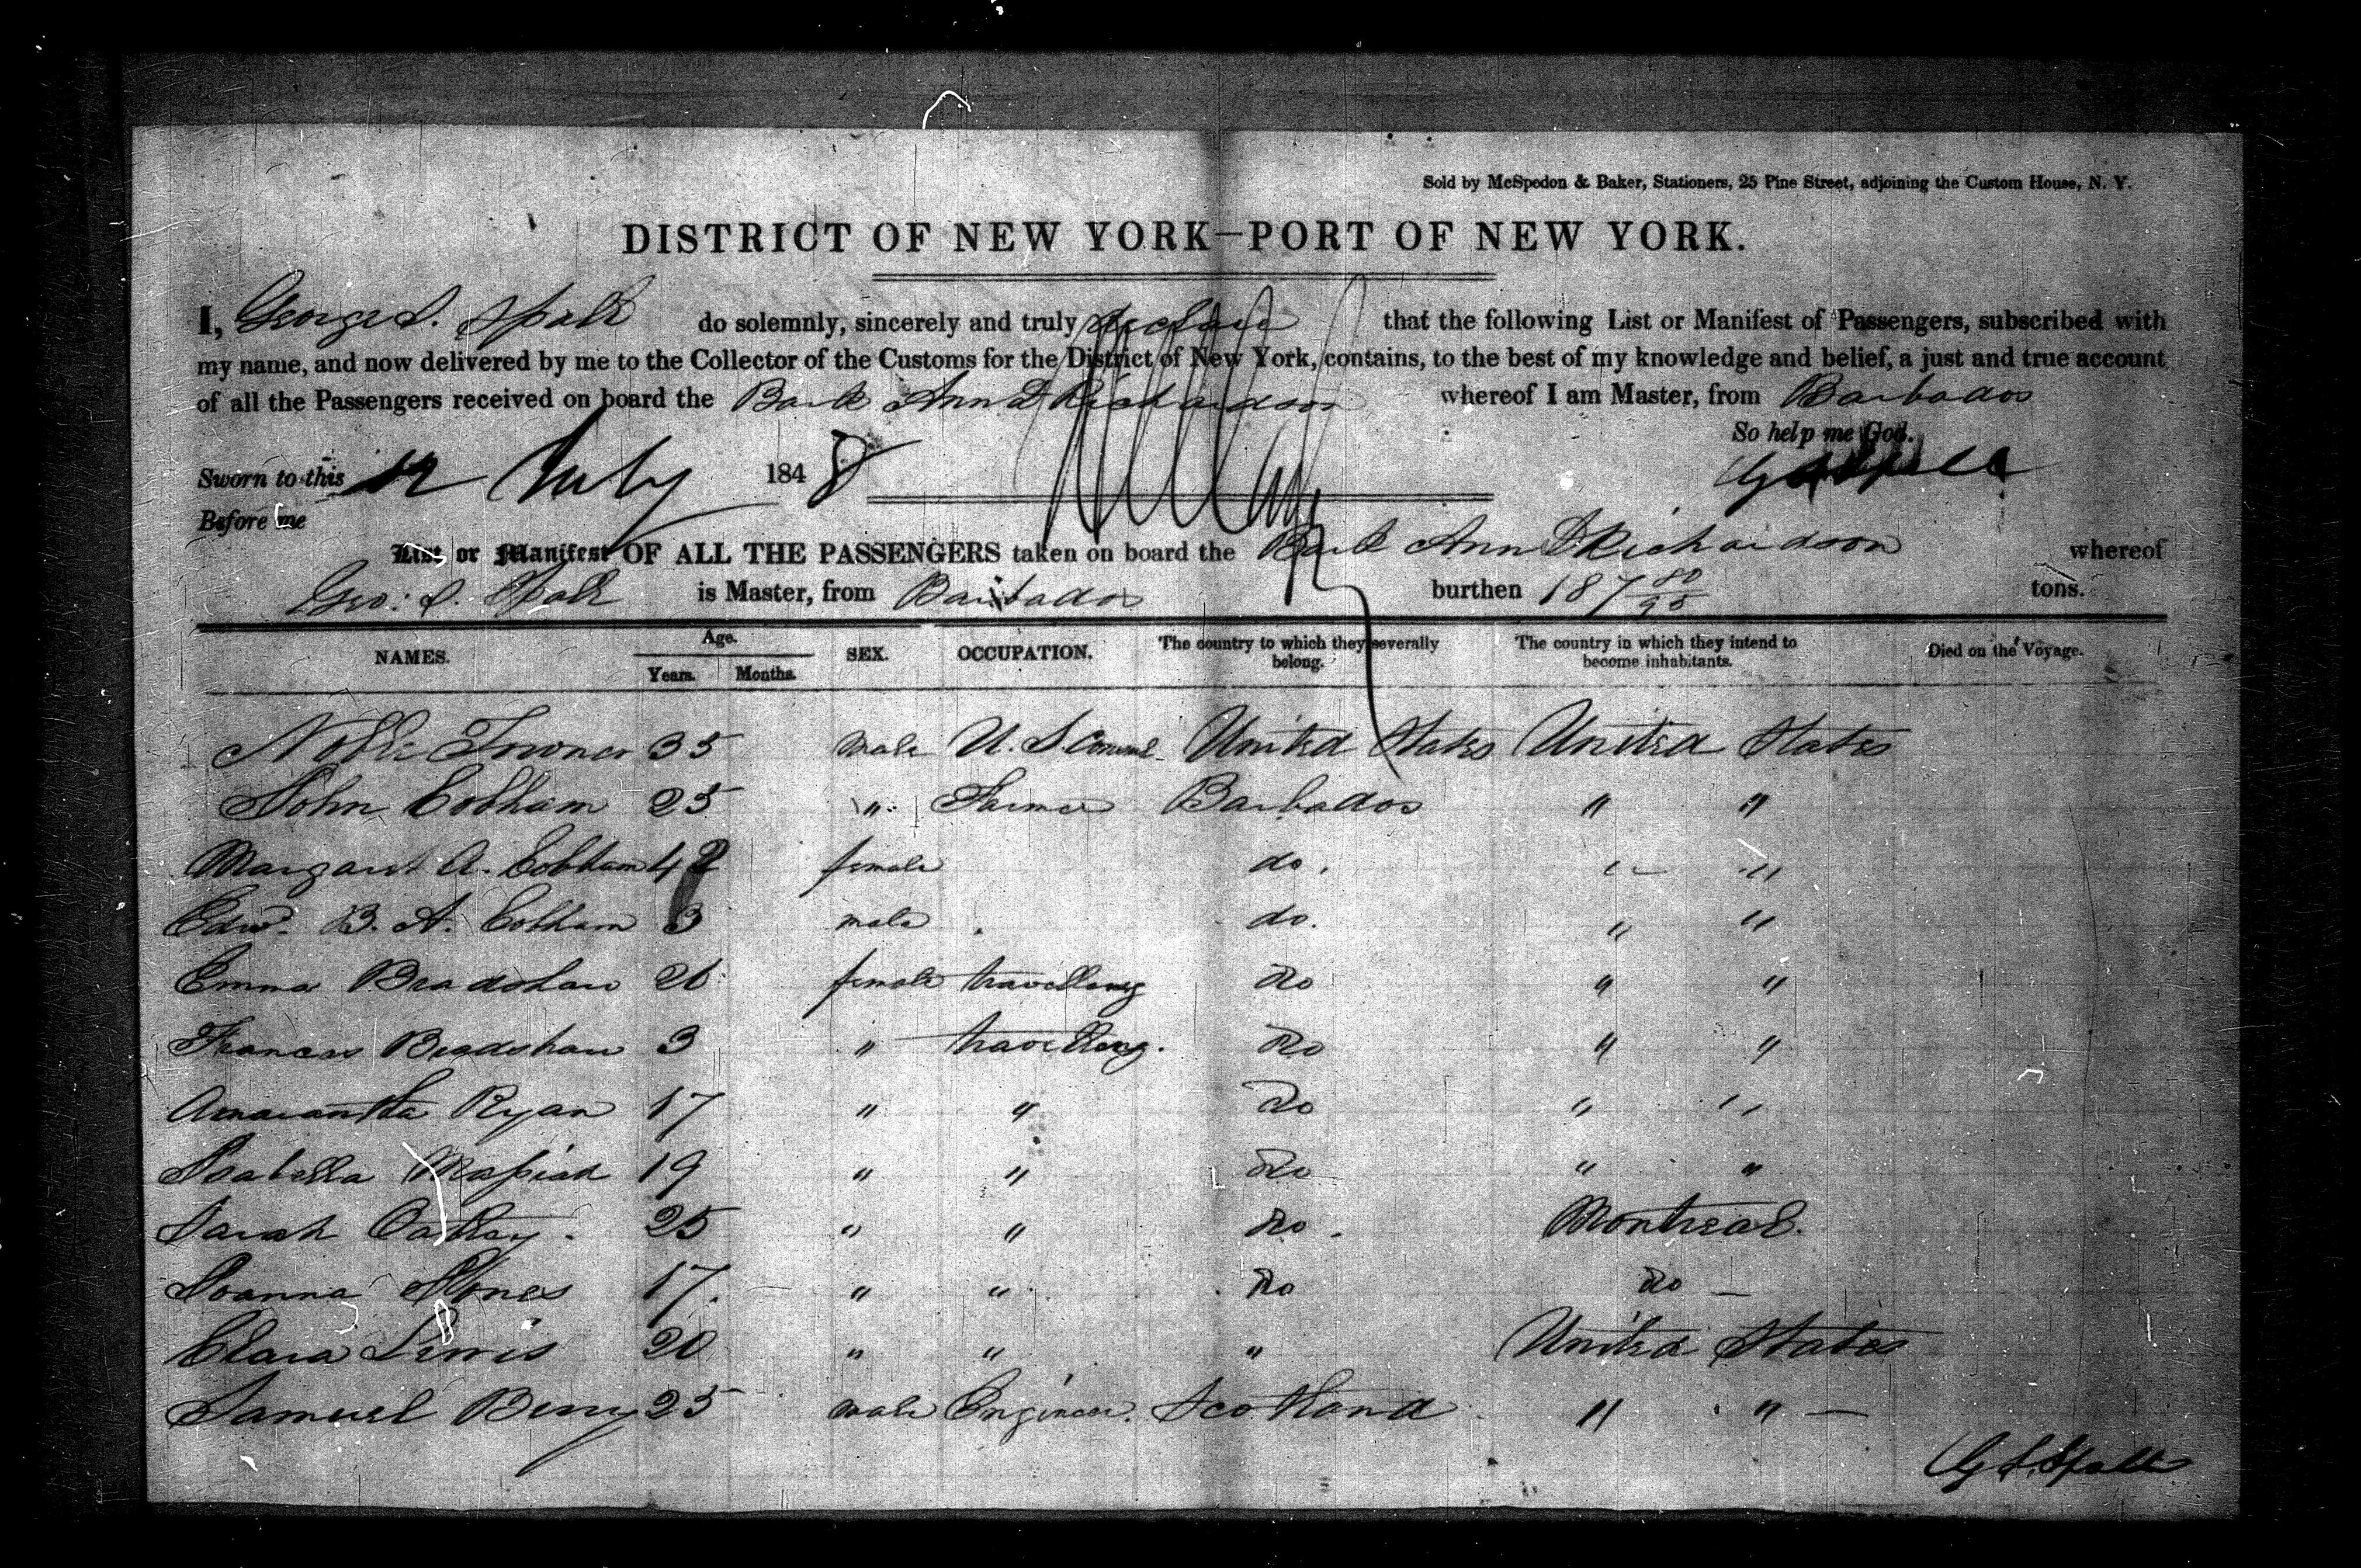 Sold by McSpedon & Baker, Stationers, 25 Pine Street, adjoining the Custom House, N. Y.
DISTRICT OF NEW YORK—PORT OF NEW YORK.
I, George S. do solemnly, sincerely and truly declare that the following List or Manifest of Passengers, subscribed with
my name, and now delivered by me to the Collector of the Customs for the District of New York, contains, to the best of my knowledge and belief, a just and true account
of all the Passengers received on board the Bark Ann D Richardson whereof I am Master, from Barbados
So help me God.
Sworn to this 12 July 1848
Before me
List or Manifest OF ALL THE PASSENGERS taken on board the Bark Ann D Richardson whereof
Geo: S. is Master, from Barbados burthen 187 80/95 tons.
NAMES. Age. Years. Months. SEX. OCCUPATION. The country to which they severally belong. The country in which they intend to become inhabitants. Died on the Voyage.
Noble Towner 35 male U. S. Consul United States United States
John Cobham 25 " Farmer Barbados " "
Margaret A. Cobham 42 female do. " "
Edwd. B. A. Cobham 3 male do. " "
Emma Bradshaw 26 female travelling Do " "
Frances Bradshaw 3 " travelling. Do " "
Amarantha Ryan 17 " " Do " "
Isabella 19 " " Do " "
Sarah Oakley. 25 " " Do. Montreal.
Joanna Jones 17. " " Do do —
Clara Lewis 20 " " " United States
Samuel Berry 25 male Engineer. Scotland " " —